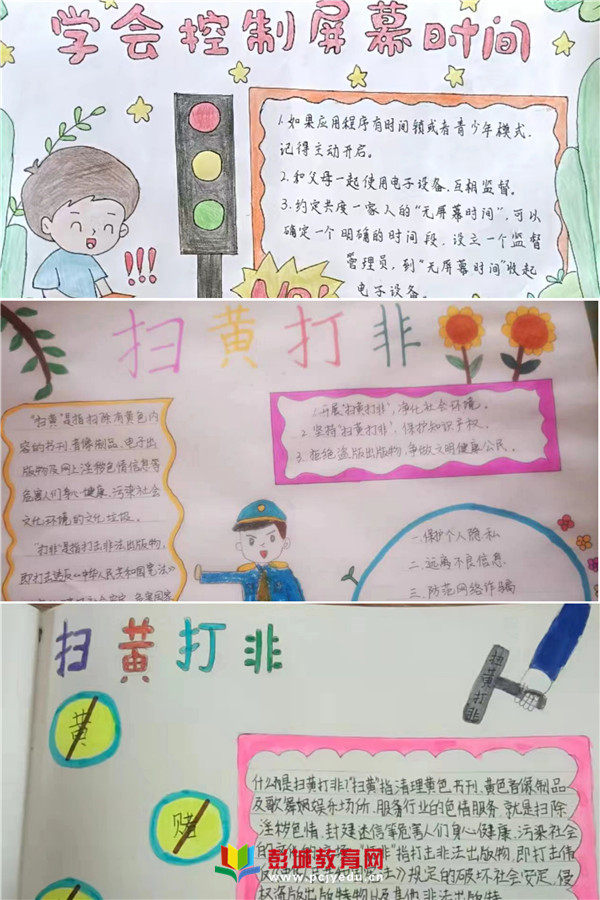 学会控制屏幕时间
1.如果应用程序有时间锁或者青少年模式,
记得主动开启。
2.和父母一起使用电子设备,互相监督。
3.约定共度一家人的“无屏幕时间”,可以
确定一个明确的时间段,设立一个监督
管理员,到“无屏幕时间”收起
电子设备。
!!!
NO!
扫黄打非
“扫黄”是指扫除有黄色内
容的书刊、音像制品、电子出
版物及网上淫秽色情信息等
危害人们身心健康、污染社会
文化环境的文化垃圾。
“打非”是指打击非法出版物,
即打击违反《中华人民共和国宪法》
1.开展“扫黄打非”,净化社会环境。
2.坚持“扫黄打非”,保护知识产权。
3.拒绝盗版出版物,争做文明健康公民。
一.保护个人隐私
二.远离不良信息
三.防范网络诈骗
扫黄打非
扫黄打非
黄
赌
什么是扫黄打非?“扫黄”指清理黄色书刊、黄色音像制品
及歌舞娱乐场所、服务行业的色情服务,就是扫除
淫秽色情、封建迷信等危害人们身心健康、污染社会
指打击非法出版物,即打击违
规定的破坏社会安定、危害
彭城教育网
www.pcjyedu.cn